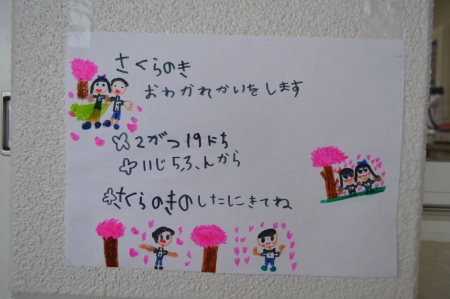 さくらのき
おわかれかいをします
2がつ19にち
11じ53,んから
さくらのきのしたにきてね